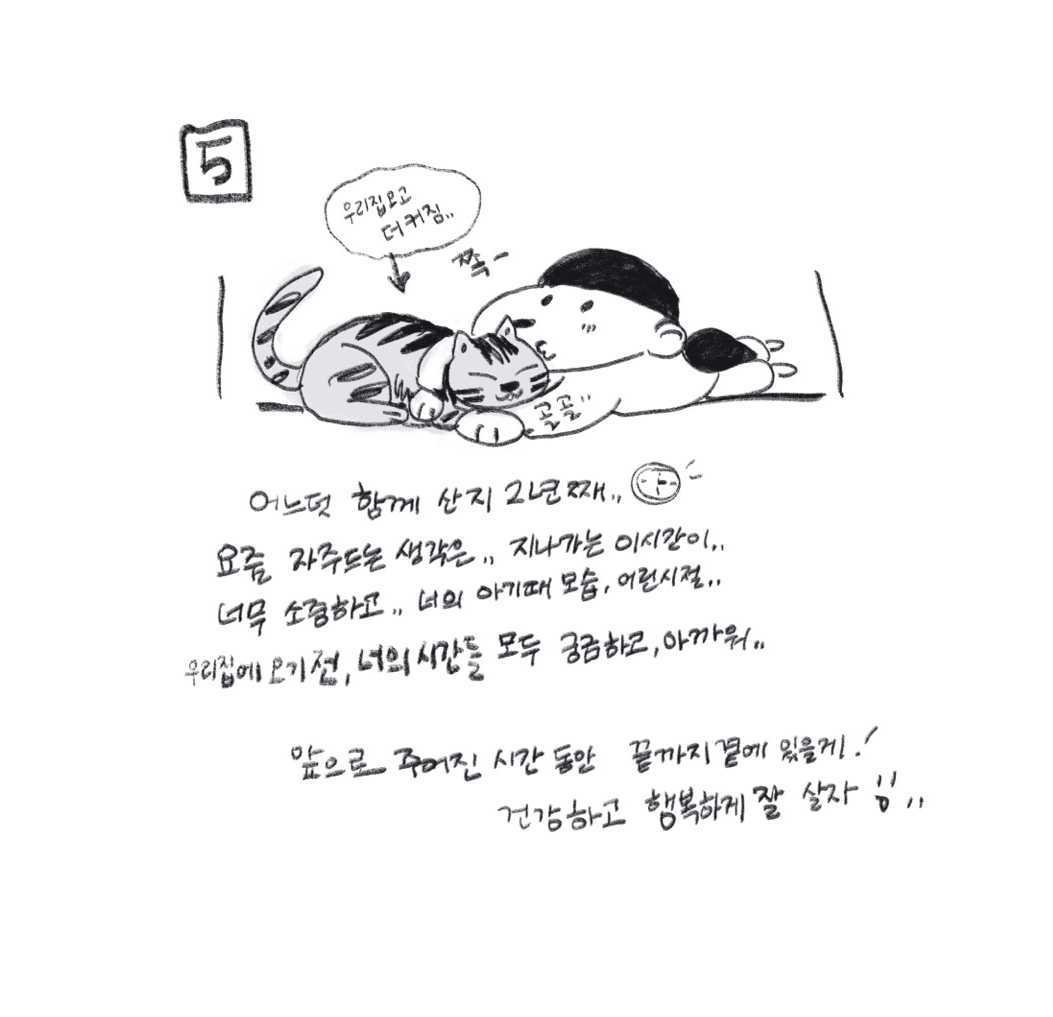 5
우리집오고
더 커짐..
쪽-
골골..
어느덧 함께 산지 2년째..
요즘 자주드는 생각은.. 지나가는 이시간이..
너무 소중하고.. 너의 아기때 모습, 어린시절..
우리집에 오기전, 너의 시간들 모두 궁금하고, 아까워..
앞으로 주어진 시간 동안 끝까지 곁에 있을게!
건강하고 행복하게 잘 살자 :)..